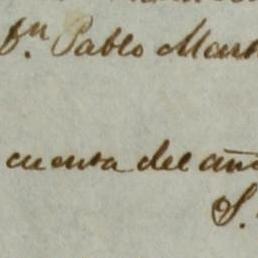 Pablo Mar
cuenta del añ
S.